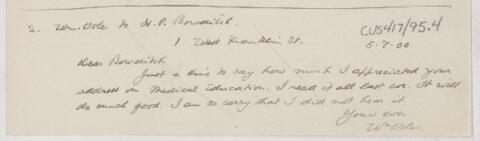 2. Wm. Osler to H. P. Bowditch. CUS417/95.4
1 West Franklin St. 5-7-00
Dear Bowditch
Just a line to say how much I appreciated your
address on Medical Education. I read it all last eve. It will
do much good. I am so sorry that I did not hear it.
Yours ever
Wm Osler